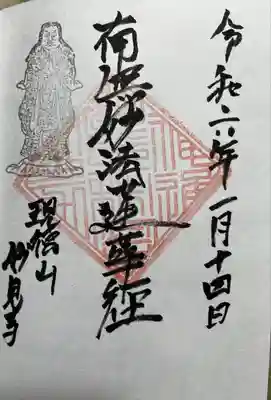 令和六年一月十四日
南無妙法蓮華経
山
妙見寺